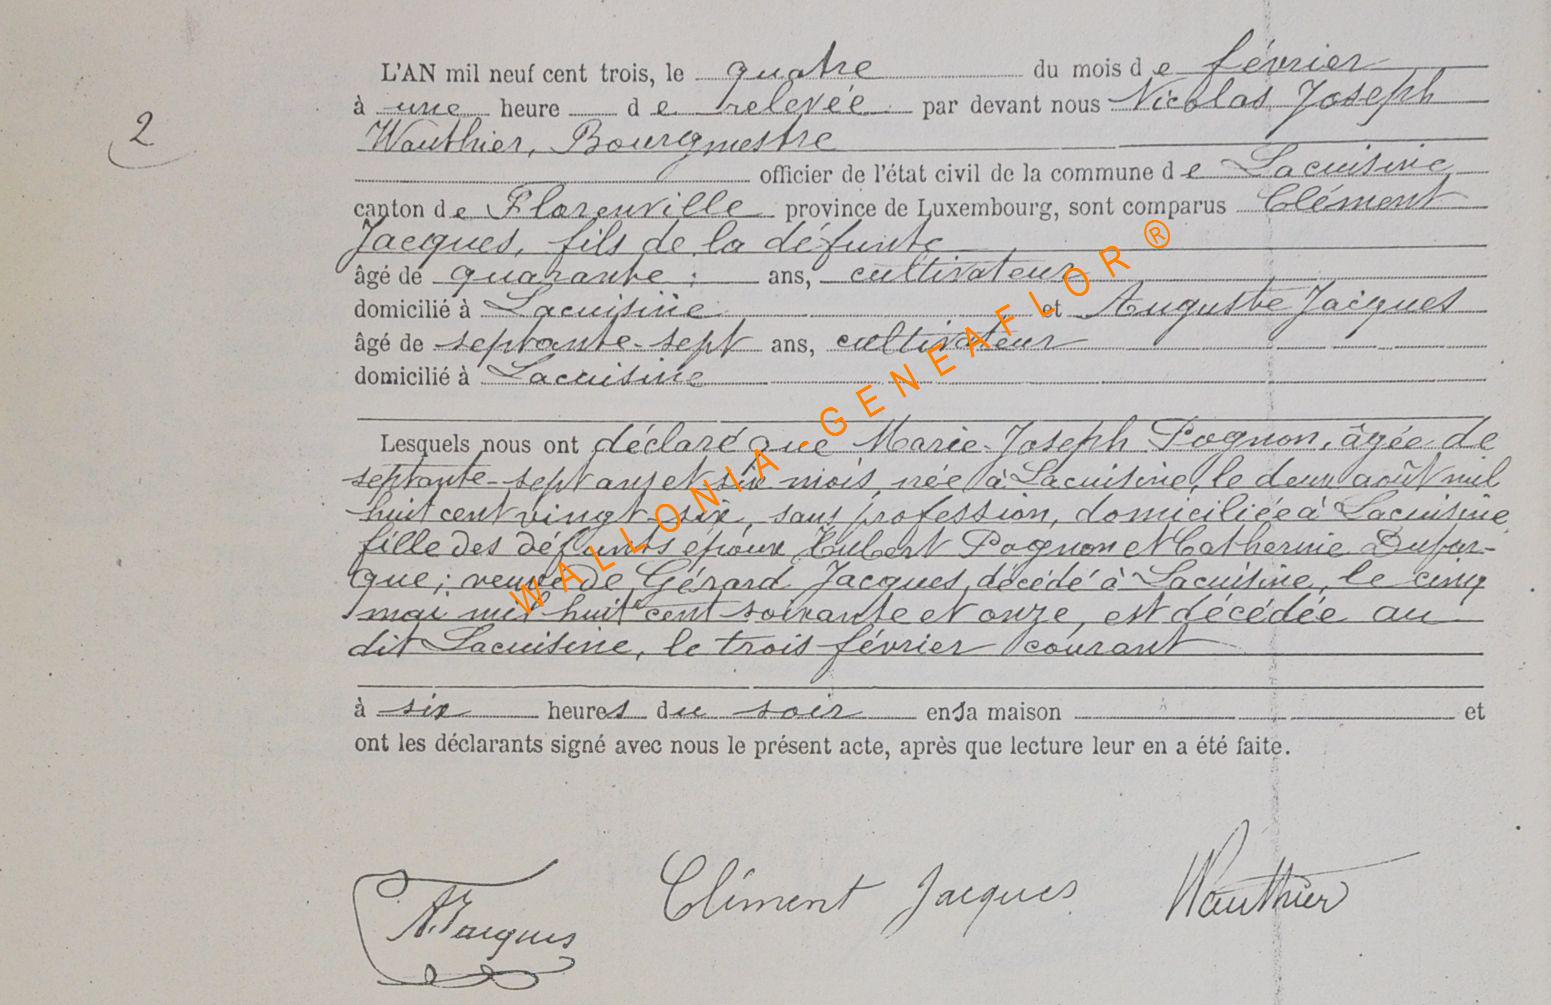 L'AN mil neuf cent trois, le quatre du mois de février
2
à une heure de relevée par devant nous Nicolas Joseph
Wauthier, Bourgmestre
officier de l'état civil de la commune de Lacuisine
canton de Florenville province de Luxembourg, sont comparus Clément
Jacques, fils de la défunte
âgé de quarante ; ans, cultivateur
domicilié à Lacuisine et Auguste Jacques
âgé de septante-sept ans, cultivateur
domicilié à Lacuisine
Lesquels nous ont déclaré que Marie-Joseph Pognon, âgée de
septante-sept ans et six mois, née à Lacuisine, le deux août mil
huit cent vingt-six, sans profession, domiciliée à Lacuisine,
fille des défunts époux Hubert Pognon et Catherine Dufar-
que ; veuve de Gérard Jacques, décédé à Lacuisine, le cinq
mai mil huit cent soixante et onze, est décédée au
dit Lacuisine, le trois février courant
à six heures du soir en sa maison et
ont les déclarants signé avec nous le présent acte, après que lecture leur en a été faite.
A. Jacques Clément Jacques Wauthier
WALLONIA - GENEAFLOR ®